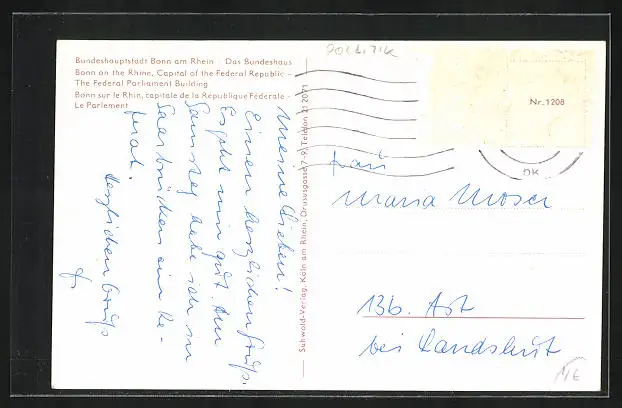 POLITIK
Bundeshauptstadt Bonn am Rhein · Das Bundeshaus
Bonn on the Rhine, Capital of the Federal Republic –
The Federal Parliament Building
Bonn sur le Rhin, capitale de la République Fédérale –
Le Parlement
Meine Lieben!
Einen herzlichen Gruß.
Es geht mir gut. Am
Samstag habe ich in
Saarbrücken ein Re-
ferat.
Herzlichen Gruß
Suhwold-Verlag, Köln am Rhein, Drususgasse 7-9, Telefon 21 2071
Nr. 1208
Frau
Maria Moser
136. Ast
bei Landshut